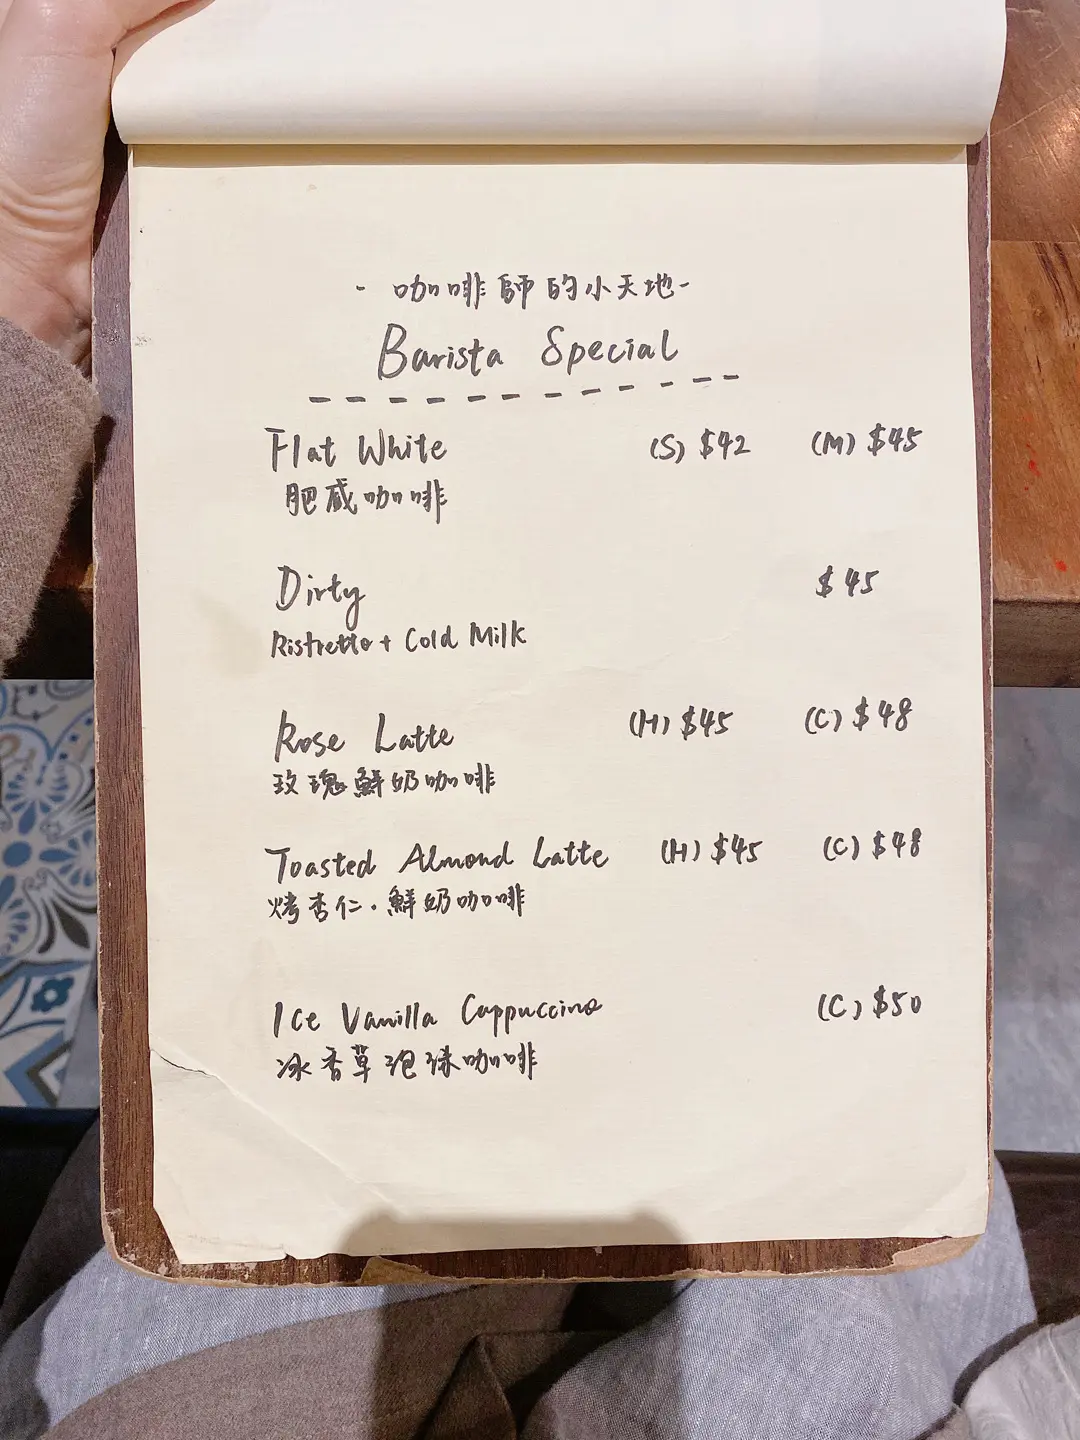 - 咖啡師的小天地-
Barista Special
Flat White (S) $42 (M) $45
肥咸咖啡
Dirty $45
Ristretto + Cold Milk
Rose Latte (H) $45 (C) $48
玫瑰鮮奶咖啡
Toasted Almond Latte (H) $45 (C) $48
烤杏仁.鮮奶咖啡
Ice Vanilla Cappuccino (C) $50
冰香草泡沫咖啡